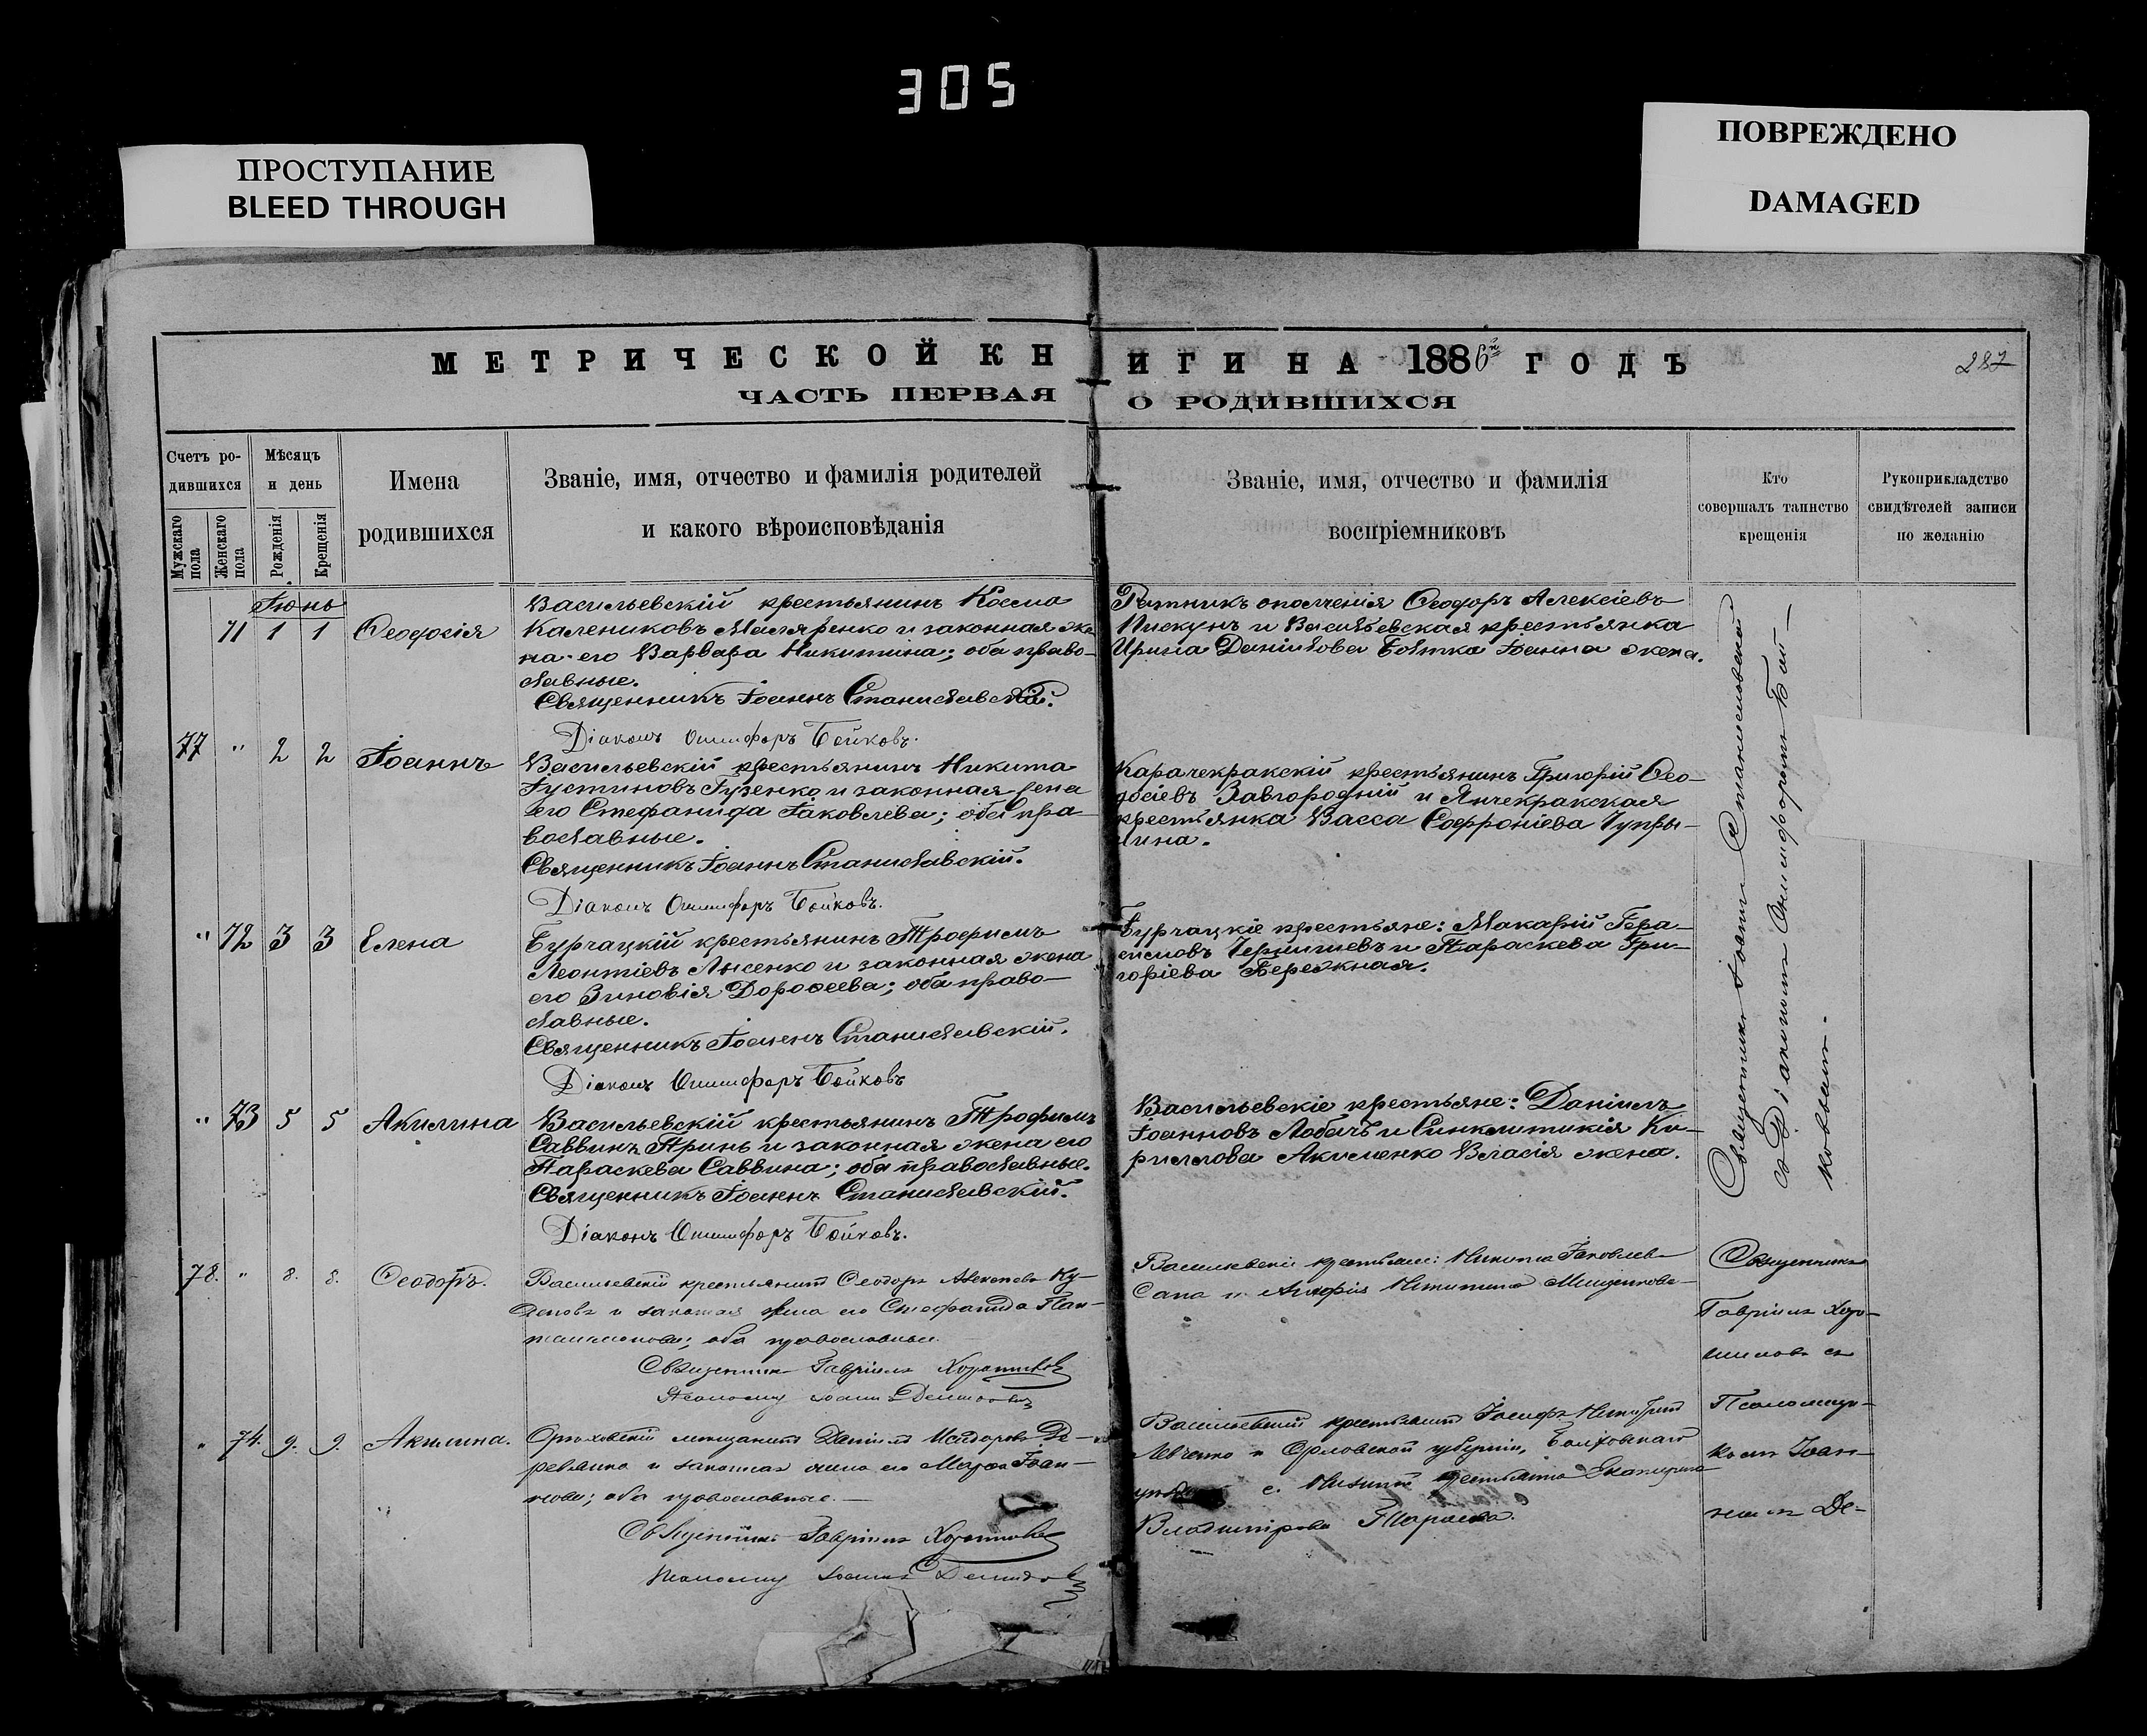 305
ПРОСТУПАНИЕ
BLEED THROUGH
ПОВРЕЖДЕНО
DAMAGED
МЕТРИЧЕСКОЙ КНИГИ НА 1886й ГОДЪ
287
ЧАСТЬ ПЕРВАЯ О РОДИВШИХСЯ
Счетъ ро-
дившихся
Мужскаго пола
Женскаго пола
Мѣсяцъ
и день
Рожденія
Крещенія
Имена
родившихся
Званіе, имя, отчество и фамилія родителей
и какого вѣроисповѣданія
Званіе, имя, отчество и фамилія
воспріемниковъ
Кто
совершалъ таинство
крещенія
Рукоприкладство
свидѣтелей записи
по желанію
Іюнь
71 1 1 Ѳеодосія
Васильевскій крестьянинъ Косма
Калениковъ Маляренко и законная же-
на его Варвара Никитина; оба право-
славные.
Священникъ Іоаннъ Станиславскій.
Діаконъ Онисифоръ Бойковъ.
Ратникъ ополченія Ѳеодоръ Алексіевъ
Пискунъ и Васильевская крестьянка
Ирина Даніилова Іоанна жена.
77 " 2 2 Іоаннъ
Васильевскій крестьянинъ Никита
Іустиновъ Гузенко и законная жена
его Стефанида Іаковлева; оба пра-
вославные.
Священникъ Іоаннъ Станиславскій.
Діаконъ Онисифоръ Бойковъ.
Карачекракскій крестьянинъ Григорій Ѳео-
досіевъ Завгородній и Янчекракская
крестьянка Васса Софроніева Чупры-
нина.
" 72 3 3 Елена
Бурчацкій крестьянинъ Трофимъ
Леонтіевъ Лысенко и законная жена
его Зиновія Дороѳеева; оба право-
славные.
Священникъ Іоаннъ Станиславскій.
Діаконъ Онисифоръ Бойковъ
Бурчацкіе крестьяне: Макарій Гера-
симовъ Чернышевъ и Параскева Гри-
горіева Бережная.
" 73 5 5 Акилина
Васильевскій крестьянинъ Трофимъ
Саввинъ Принь и законная жена его
Параскева Саввина; оба православные.
Священникъ Іоаннъ Станиславскій.
Діаконъ Онисифоръ Бойковъ.
Васильевскіе крестьяне: Даніилъ
Іоанновъ Лобачъ и Синклитикія Ки-
риллова Акименко Власія жена.
Священникъ Іоаннъ Станиславскій
съ Діакономъ Онисифоромъ Бой-
ковымъ.
78. " 8. 8. Ѳеодоръ.
Васильевскій крестьянинъ Ѳеодоръ
и законная жена его Стефанида Пан-
телимонова; оба православные.
Священникъ Гавріилъ
Псаломщ Іоаннъ
Васильевскіе крестьяне: Никита Іаковлевъ
Сапа и Никитина Мищенкова
Священникъ
Гавріилъ
съ
Псаломщи-
комъ Іоан-
номъ Де-
" 74. 9. 9. Акилина.
Орѣховскій мещанинъ Даніилъ Исидоровъ Де-
ревянко и законная жена его Марѳа Іоан-
нова; оба православные.
Священникъ Гавріилъ
Псаломщ Іоаннъ
Васильевскій крестьянинъ Іосифъ
Левченко и Орловской губерніи, Болховскаго
с. крестьянка Екатерина
Владимірова